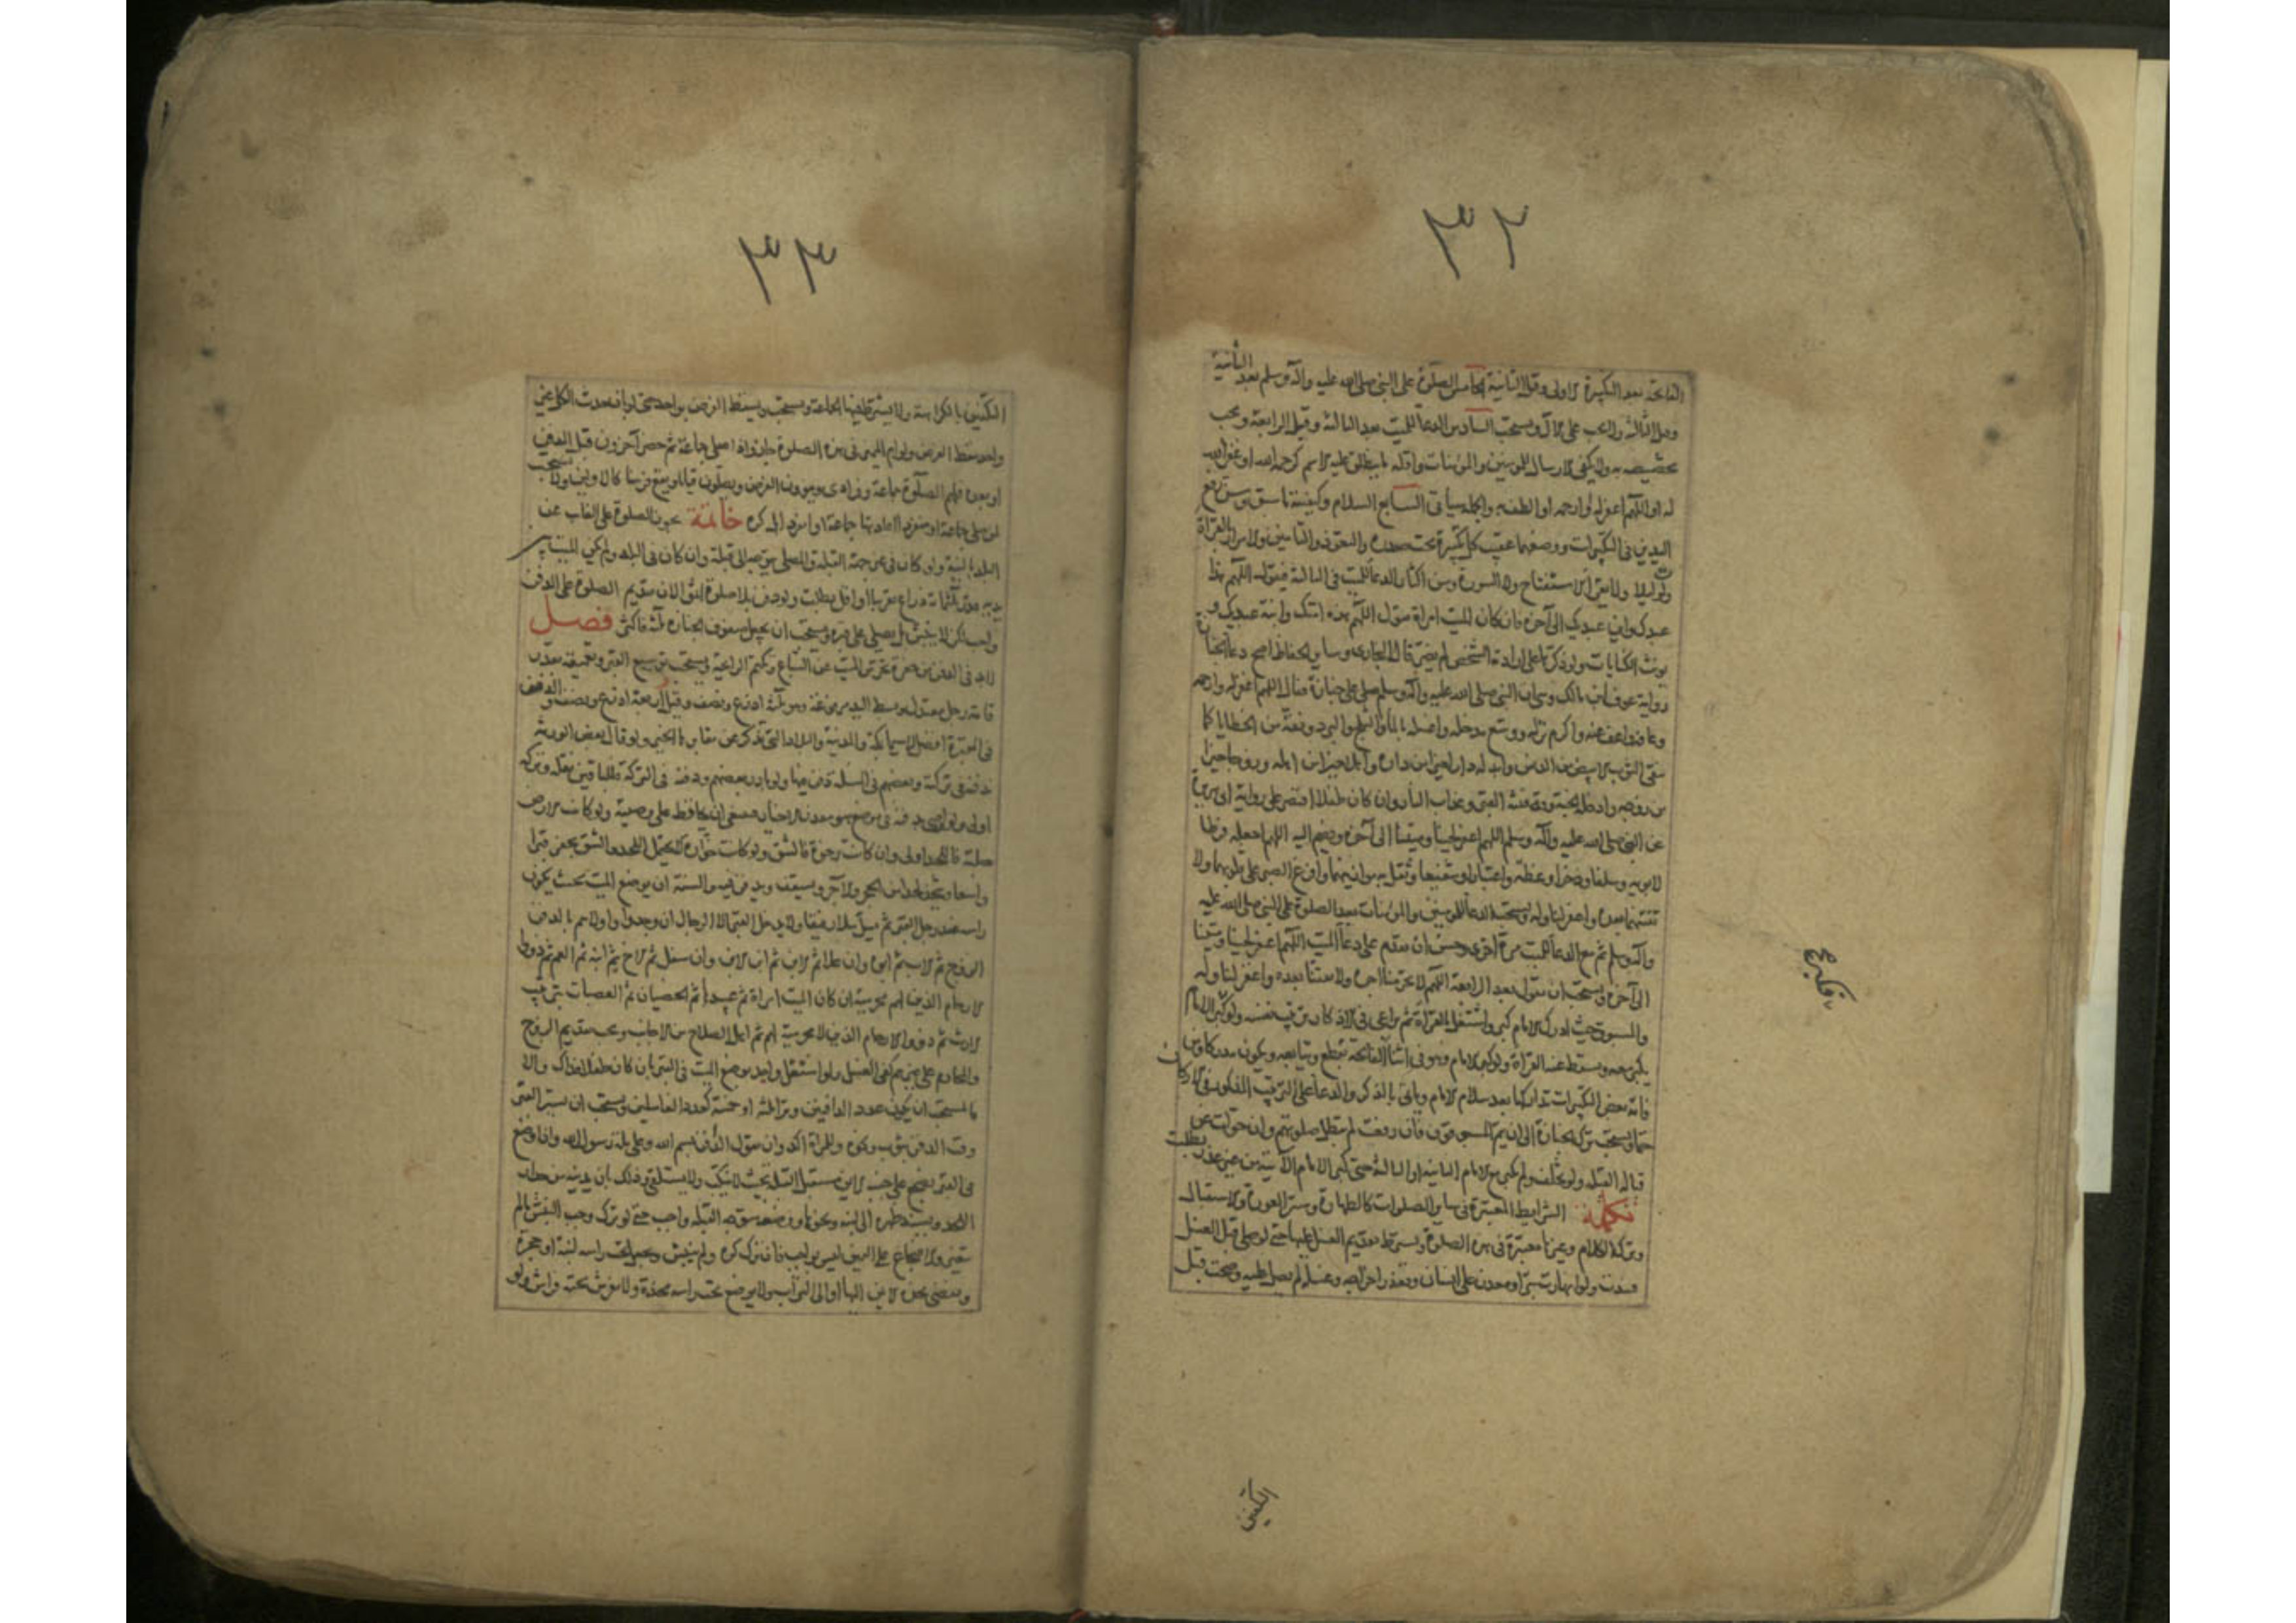 ٣٢
الفاتحة بعد التكبيرة الاولى وقبل الثانية الخامس الصلوة على النبي صلى الله عليه واله وسلم بعد الثانية
وقبل الثالثة ولا تجب على الآل ويستحب السادس الدعاء للميت بعد الثالثة وقبل الرابعة ويجب
تخصيصه به ولا يكفي الارسال للمومنين والمومنات واقله ما ينطلق عليه الاسم كرحمه الله او غفر الله
له او اللهم اغفر له وارحمه او الطف به واكمله سيأتي السابع السلام وكيفيته ما سبق ويسن رفع
اليدين في التكبيرات ووضعهما عقيب كل تكبيرة تحت صدره والتعوذ والتامين والاسرار بالقرأة
ولو ليلا ولا يقرأ الاستفتاح ولا السورة ويسن اكثار الدعاء للميت في الثالثة فيقول اللهم هذا
عبدك وابن عبديك الى آخره فان كان الميت امراة يقول اللهم هذه امتك وابنة عبديك و
يونث الكنايات ولو ذكرها على ارادة الشخص لم يضر قال البخاري وساير الحفاظ اصح دعاء الجنازة
رواية عوف ابن مالك وهي ان النبي صلى الله عليه واله وسلم صلى على جنازة فقال اللهم اغفر له وارحمه
وعافه واعف عنه واكرم نزله ووسع مدخله واغسله بالماء والثلج والبرد ونقه من الخطايا كما
ينقى الثوب الابيض من الدنس وابدله دارا خيرا من داره واهلا خيرا من اهله وزوجا خيرا
من زوجه وادخله الجنة وقه فتنة القبر وعذاب النار وان كان طفلا اقتصر على رواية ابي هريرة
عن النبي صلى الله عليه واله وسلم اللهم اغفر لحينا وميتنا الى آخره ويضم اليه اللهم اجعله فرطا
لابويه وسلفا وذخرا وعظة واعتبارا وشفيعا وثقل به موازينهما وافرغ الصبر على قلوبهما ولا
تفتنهما بعده واغفر لنا وله ويستحب الدعاء للمومنين والمومنات بعد الصلوة على النبي صلى الله عليه
واله وسلم ثم مع الدعاء للميت مرة اخرى وحسن ان يقدم على دعاء الميت اللهم اغفر لحينا وميتنا
الى آخره ويستحب ان يقول بعد الرابعة اللهم لا تحرمنا اجره ولا تفتنا بعده واغفر لنا وله
والمسبوق حيث ادرك الامام كبر واشتغل بالقرأة ثم يراعي في الاذكار ترتيب نفسه ولو كبر الامام
يكبر معه ويسقط عنه القرأة ولو كبر الامام وهو في اثناء الفاتحة يقطع ويتابعه
فاته بعض التكبيرات تداركها بعد سلام الامام وياتي بالذكر والدعاء على الترتيب المذكور في الاركان
حتما ويستحب ترك الجنازة الى ان يتم المسبوقون فان رفعت لم تبطل صلوتهم وان حولت عن
قبالة القبلة ولو تخلف ولم يكبر مع الامام الثانية او الثالثة حتى كبر الامام الآتية من غير عذر بطلت
تكملة الشرايط المعتبرة في ساير الصلوات كالطهارة وستر العورة والاستقبال
وترك الكلام وغيرها معتبرة في هذه الصلوة ويشترط تقديم الغسل عليها حتى لو صلى قبل الغسل
فسدت ولو انهارت بئر او معدن على انسان وتعذر اخراجه وغسله لم يصل عليه وصحت قبل
التكفين
٣٣
التكفين بالكراهة ولا يشترط فيها الجماعة ويستحب ويسقط الفرض بواحد حتى لو بان حدث الكل غير
واحد سقط الفرض
او بعده فلهم الصلوة جماعة وفرادى وينوون الفرض ويصلون قياما ويقع فرضا كالاولين ولا يستحب
لمن صلى جماعة او منفردا اعادتها جماعة او انفرادا بل كره خاتمة يجوز الصلوة على الغائب عن
البلد بالنية ولو كان في غير جهة القبلة والمصلي يتوجه الى قبلة وان كان في البلد ولم يكن الميت بين
يديه فوق ثلثمائة ذراع تقريبا او اقل بطلت ولو دفن بلا صلوة اثموا لان تقديم الصلوة على الدفن
واجب لكن لا ينبش بل يصلى على قبره ويستحب ان يجعل صفوف الجنازة ثلثة فاكثر فصل
لابد في الدفن من حفرة تحرس الميت عن السباع وتكتم الرائحة ويستحب توسيع القبر وتعميقه بقدر
قامة رجل معتدل يبسط اليد مرفوعة وهو ثلثة اذرع ونصف وقيل اربعة اذرع ونصف والدفن
في المقبرة افضل لاسيما بمكة والمدينة والبلاد التي تذكر عن مقابرها الخير ولو قال بعض الورثة
ندفنه في تركته وبعضهم في المسبلة دفن فيها ولو بادر بعضهم ودفنه في التركة فللباقين نقله وتركه
اولى ولو اوصى بدفنه في موضع هو معدن الاخيار فينبغي ان يحافظ على وصيته ولو كانت الارض
صلبة فاللحد اولى وان كانت رخوة فالشق ولو كانت خوارة لا تحتمل اللحد والشق يحفر قبرا
واسعا ويتخذ لحدا من الحجر والآجر ويسقف ويدفن فيه والسنة ان يوضع الميت بحيث يكون
راسه عند رجل القبر ثم يسل سلا رفيقا ولا يدخل القبر الا الرجال ان وجدوا واولاهم بالدفن
الزوج ثم الاب ثم ابوه وان علا ثم الابن ثم ابن الابن وان سفل ثم الاخ ثم ابنه ثم العم ثم ذووا
الارحام الذين لهم محرمية ان كان الميت امراة ثم عبيدها ثم الخصيان ثم العصبات بترتيب
الارث ثم ذووا الارحام الذين لا محرمية لهم ثم اهل الصلاح من الاجانب ويجب تقديم الزوج
والمحارم على غيرهم كفى الغسل ولو استقل واحد بوضع الميت في القبر بان كان طفلا فذاك والا
فالمستحب ان يكون عدد الدافنين وترا ثلثة او خمسة كعدد الغاسلين ويستحب ان يستر القبر
وقت الدفن بثوب ونحوه وللمراة آكد وان يقول الدافن بسم الله وعلى ملة رسول الله واذا وضع
في القبر يضجع على جنبه الايمن مستقبل القبلة بحيث لا ينكب ولا يستلقي وذلك بان يدنيه من جدار
اللحد ويسند ظهره الى لبنة ونحوها ووضعه متوجه القبلة واجب حتى لو ترك وجب النبش مالم
يتغير والاضجاع على اليمين ليس بواجب فان ترك كره ولم ينبش ويجعل تحت راسه لبنة او حجرة
ويفضى بخده الايمن اليها او الى التراب ولا يوضع تحت راسه مخدة ولا يفرش تحته فراش ولو